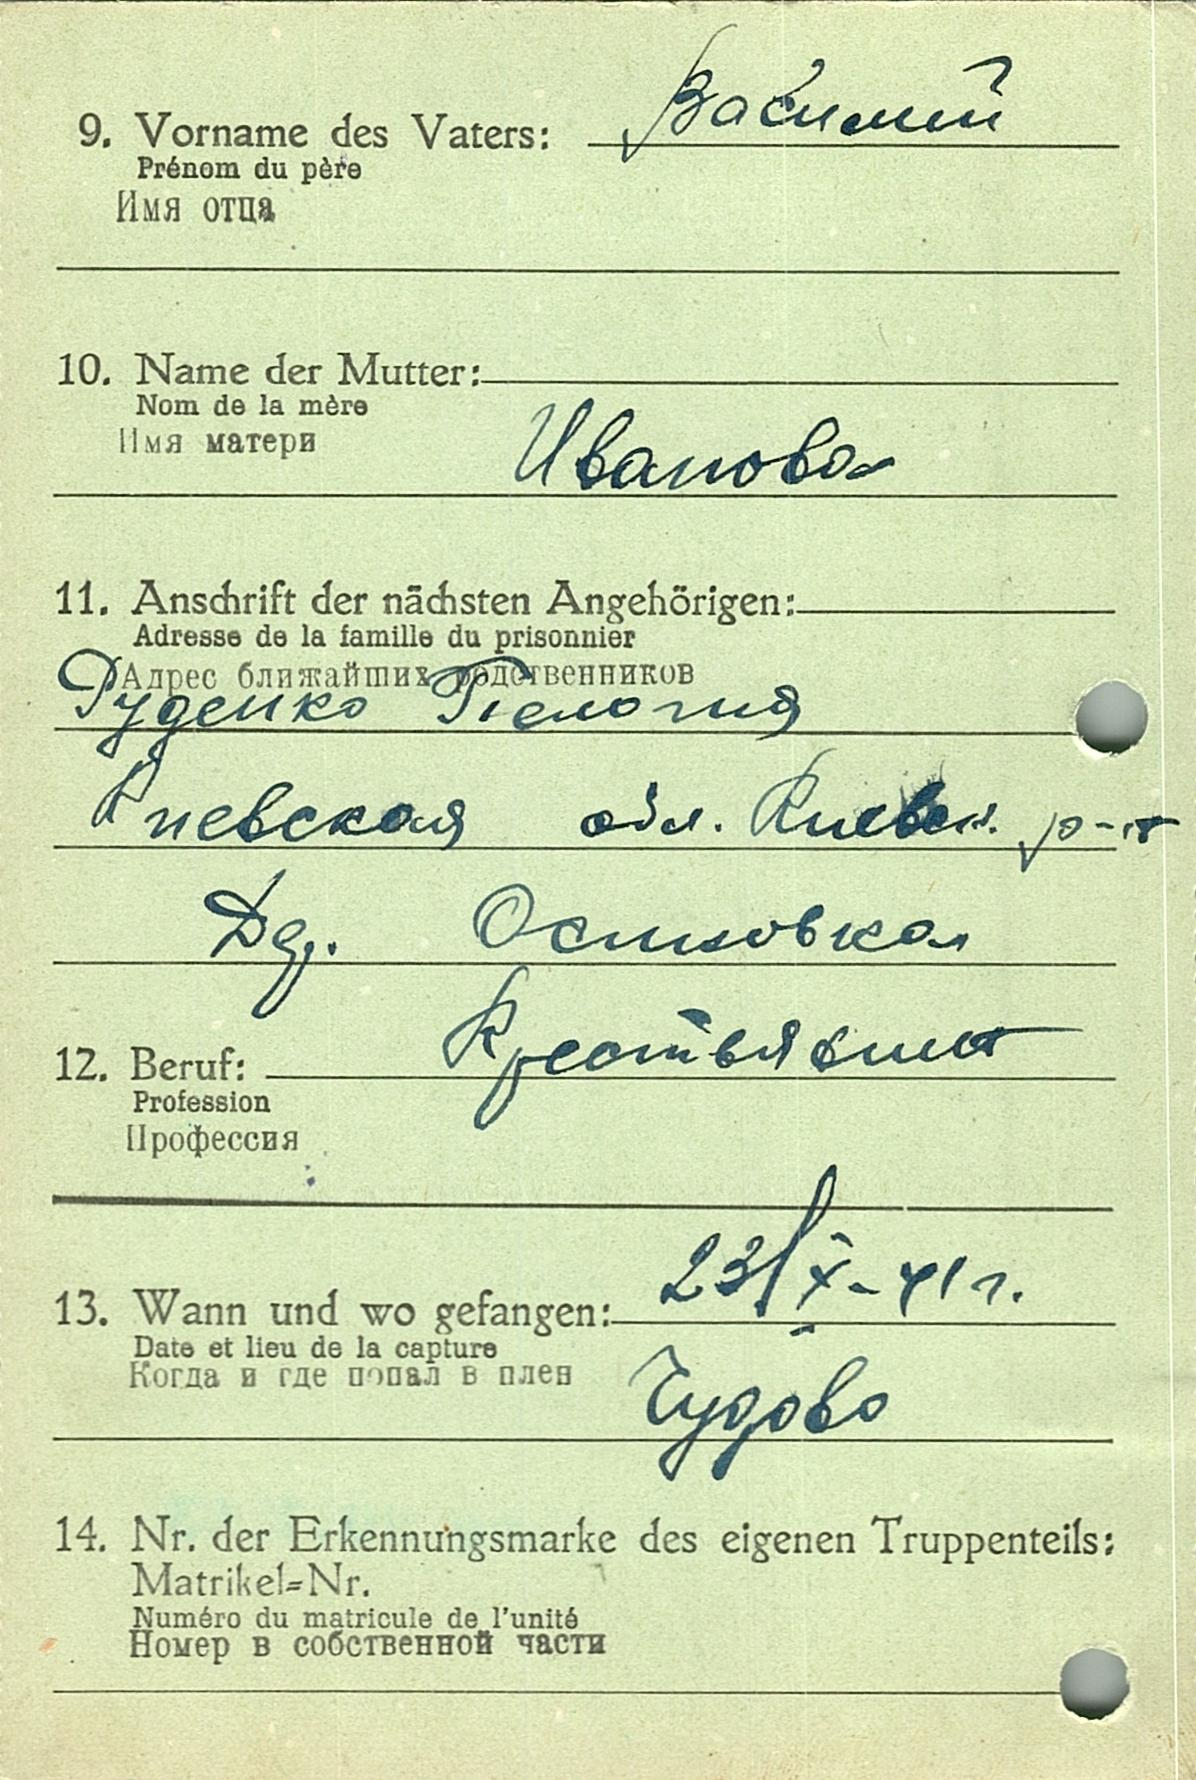 9. Vorname des Vaters: Василий
Prénom du père
Имя отца
10. Name der Mutter:
Nom de la mère
Имя матери
Иванова
11. Anschrift der nächsten Angehörigen:
Adresse de la famille du prisonnier
Адрес ближайших родственников
Руденко Пелогия
Киевская обл. Киевск. р-н
Дер. Осиповка
Крестьянин
12. Beruf:
Profession
Профессия
23/X-41 г.
13. Wann und wo gefangen:
Date et lieu de la capture
Когда и где попал в плен
Чудово
14. Nr. der Erkennungsmarke des eigenen Truppenteils:
Matrikel=Nr.
Numéro du matricule de l'unité
Номер в собственной части